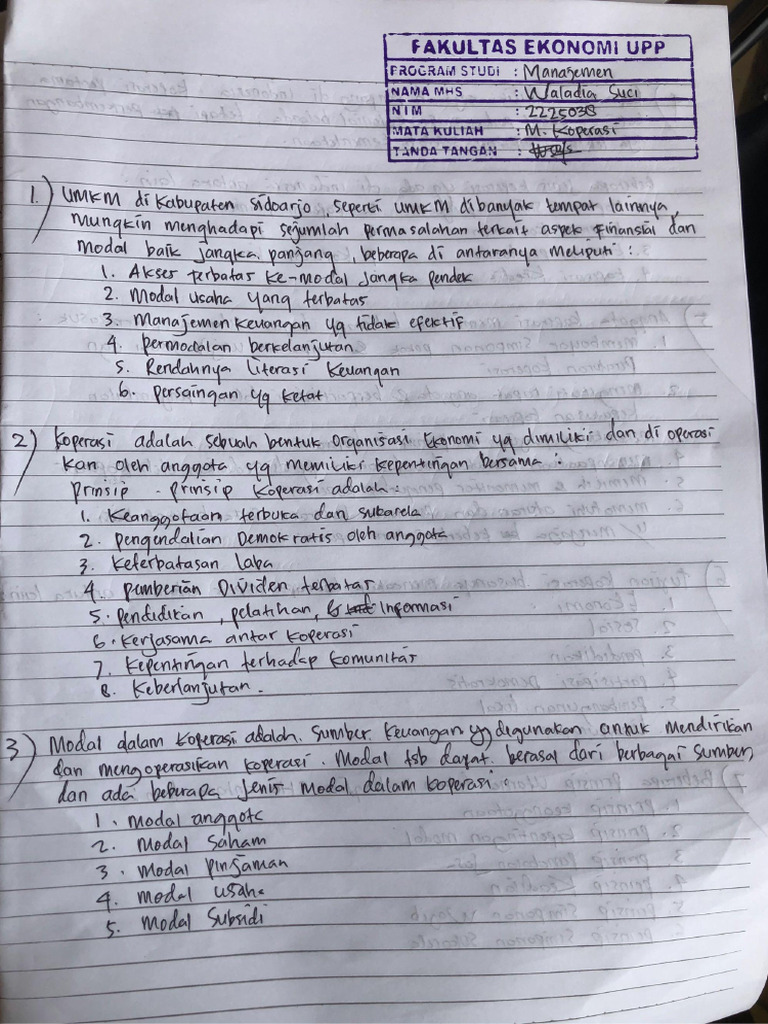 FAKULTAS EKONOMI UPP
PROGRAM STUDI : Manajemen
NAMA MHS : Waladia Suci
NIM : 2225038
MATA KULIAH : M. Koperasi
TANDA TANGAN :
1.) UMKM di Kabupaten Sidoarjo, seperti UMKM dibanyak tempat lainnya,
Mungkin menghadapi sejumlah permasalahan terkait aspek Finansial dan
Modal baik jangka panjang, beberapa di antaranya meliputi :
1. Akses terbatas ke-modal jangka pendek
2. Modal usaha yang terbatas
3. Manajemen keuangan yg tidak efektif
4. permodalan berkelanjutan
5. Rendahnya literasi keuangan
6. persaingan yg ketat
2) Koperasi adalah sebuah bentuk organisasi Ekonomi yg dimiliki dan di operasi
kan oleh anggota yg memiliki kepentingan bersama :
prinsip - prinsip koperasi adalah :
1. Keanggotaan terbuka dan sukarela
2. pengendalian Demokratis oleh anggota
3. Keterbatasan laba
4. pemberian Dividen terbatas
5. pendidikan, pelatihan, & Informasi
6. Kerjasama antar koperasi
7. Kepentingan terhadap komunitas
8. Keberlanjutan.
3) Modal dalam koperasi adalah. Sumber keuangan yg digunakan untuk mendirikan
dan mengoperasikan koperasi. Modal tsb dapat berasal dari berbagai sumber,
dan ada beberapa jenis modal dalam koperasi :
1. Modal anggota
2. Modal saham
3. Modal pinjaman
4. modal usaha
5. Modal Subsidi